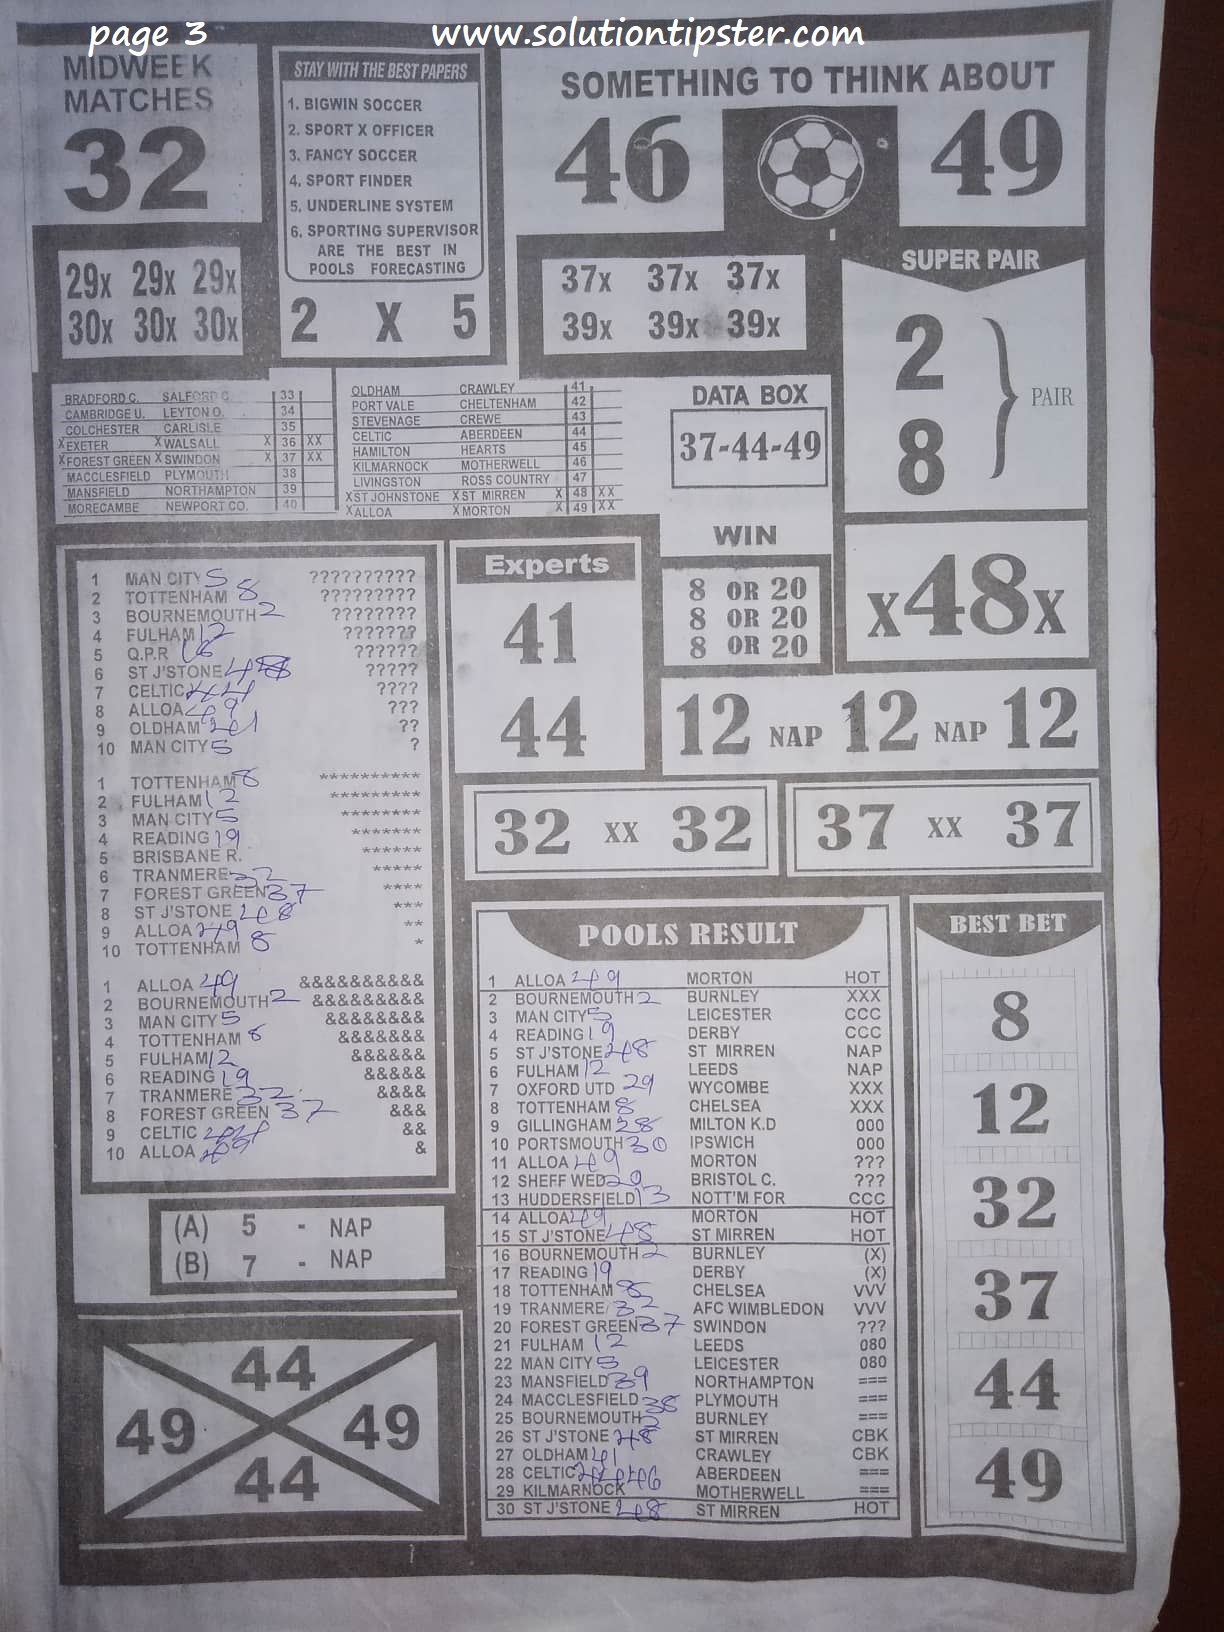 page 3
www.solutiontipster.com
MIDWEEK
MATCHES
32
STAY WITH THE BEST PAPERS
1. BIGWIN SOCCER
2. SPORT X OFFICER
3. FANCY SOCCER
4. SPORT FINDER
5. UNDERLINE SYSTEM
6. SPORTING SUPERVISOR
ARE THE BEST IN
POOLS FORECASTING
2 X 5
SOMETHING TO THINK ABOUT
46 49
29x 29x 29x
30x 30x 30x
37x 37x 37x
39x 39x 39x
SUPER PAIR
2
8
PAIR
BRADFORD C. SALFORD C. 33
CAMBRIDGE U. LEYTON O. 34
COLCHESTER CARLISLE 35
X EXETER X WALSALL X 36 XX
X FOREST GREEN X SWINDON X 37 XX
MACCLESFIELD PLYMOUTH 38
MANSFIELD NORTHAMPTON 39
MORECAMBE NEWPORT CO. 40
OLDHAM CRAWLEY 41
PORT VALE CHELTENHAM 42
STEVENAGE CREWE 43
CELTIC ABERDEEN 44
HAMILTON HEARTS 45
KILMARNOCK MOTHERWELL 46
LIVINGSTON ROSS COUNTRY 47
X ST JOHNSTONE X ST MIRREN X 48 XX
X ALLOA X MORTON X 49 XX
DATA BOX
37-44-49
WIN
8 OR 20
8 OR 20
8 OR 20
X48X
Experts
41
44
12 NAP 12 NAP 12
32 XX 32
37 XX 37
1 MAN CITY 5 ??????????
2 TOTTENHAM 8 ?????????
3 BOURNEMOUTH 2 ????????
4 FULHAM 12 ???????
5 Q.P.R ??????
6 ST J'STONE 48 ?????
7 CELTIC 44 ????
8 ALLOA 49 ???
9 OLDHAM 41 ??
10 MAN CITY 5 ?
1 TOTTENHAM 8 **********
2 FULHAM 12 *********
3 MAN CITY 5 ********
4 READING 19 *******
5 BRISBANE R. ******
6 TRANMERE 32 *****
7 FOREST GREEN 37 ****
8 ST J'STONE 48 ***
9 ALLOA 49 **
10 TOTTENHAM 8 *
1 ALLOA 49 &&&&&&&&&&
2 BOURNEMOUTH 2 &&&&&&&&&
3 MAN CITY 5 &&&&&&&&
4 TOTTENHAM 8 &&&&&&&
5 FULHAM 12 &&&&&&
6 READING 19 &&&&&
7 TRANMERE 32 &&&&
8 FOREST GREEN 37 &&&
9 CELTIC 44 &&
10 ALLOA 49 &
(A) 5 - NAP
(B) 7 - NAP
44
49 49
44
POOLS RESULT
1 ALLOA 49 MORTON HOT
2 BOURNEMOUTH 2 BURNLEY XXX
3 MAN CITY 5 LEICESTER CCC
4 READING 19 DERBY CCC
5 ST J'STONE 48 ST MIRREN NAP
6 FULHAM 12 LEEDS NAP
7 OXFORD UTD 29 WYCOMBE XXX
8 TOTTENHAM 8 CHELSEA XXX
9 GILLINGHAM 28 MILTON K.D 000
10 PORTSMOUTH 30 IPSWICH 000
11 ALLOA 49 MORTON ???
12 SHEFF WED 20 BRISTOL C. ???
13 HUDDERSFIELD 13 NOTT'M FOR CCC
14 ALLOA 49 MORTON HOT
15 ST J'STONE 48 ST MIRREN HOT
16 BOURNEMOUTH 2 BURNLEY (X)
17 READING 19 DERBY (X)
18 TOTTENHAM 8 CHELSEA VVV
19 TRANMERE 32 AFC WIMBLEDON VVV
20 FOREST GREEN 37 SWINDON ???
21 FULHAM 12 LEEDS 080
22 MAN CITY 5 LEICESTER 080
23 MANSFIELD 39 NORTHAMPTON ===
24 MACCLESFIELD 38 PLYMOUTH ===
25 BOURNEMOUTH 2 BURNLEY ===
26 ST J'STONE 48 ST MIRREN CBK
27 OLDHAM 41 CRAWLEY CBK
28 CELTIC 44 ABERDEEN ===
29 KILMARNOCK 46 MOTHERWELL ===
30 ST J'STONE 48 ST MIRREN HOT
BEST BET
8
12
32
37
44
49